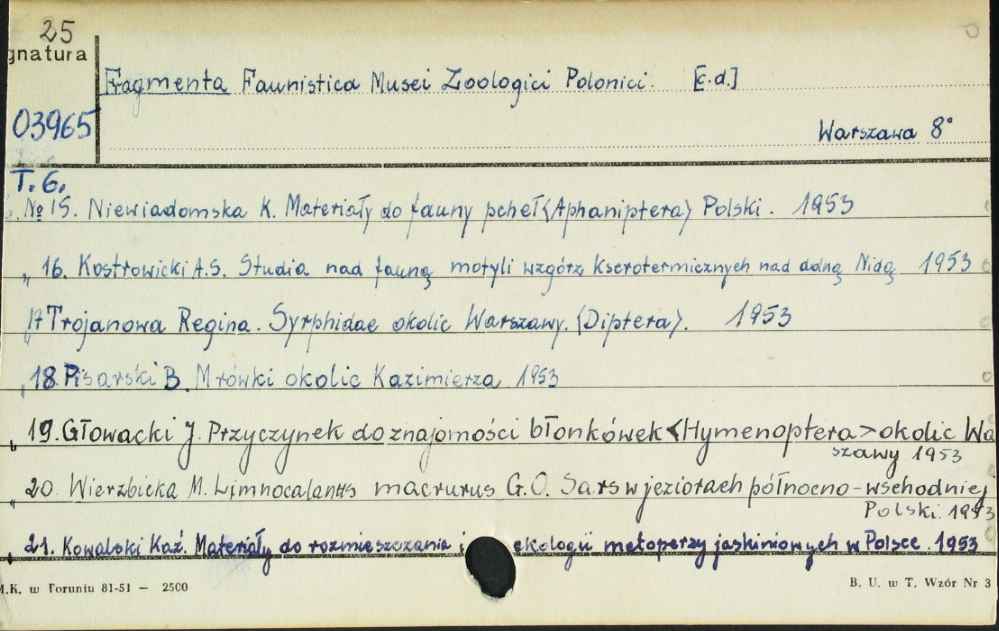 25
gnatura
Fragmenta Faunistica Musei Zoologici Polonici. [c.d.]
03965
Warszawa 8°
T. 6.
№ 15. Niewiadomska K. Materiały do fauny pcheł <Aphaniptera> Polski. 1953
" 16. Kostrowicki A.S. Studia nad fauną motyli wzgórz kserotermicznych nad dolną Nidą 1953
" 17 Trojanowa Regina. Syrphidae okolic Warszawy. <Diptera>. 1953
" 18. Pisarski B. Mrówki okolic Kazimierza 1953
" 19. Głowacki J. Przyczynek do znajomości błonkówek <Hymenoptera> okolic Wa
szawy 1953
" 20. Wierzbicka M. Limnocalanus macrurus G.O. Sars w jeziorach północno-wschodniej
Polski. 1953
" 21. Kowalski Kaź. Materiały do rozmieszczania i ekologii nietoperzy jaskiniowych w Polsce. 1953
M.K. w Toruniu 81-51 — 2500
B. U. w T. Wzór Nr 3